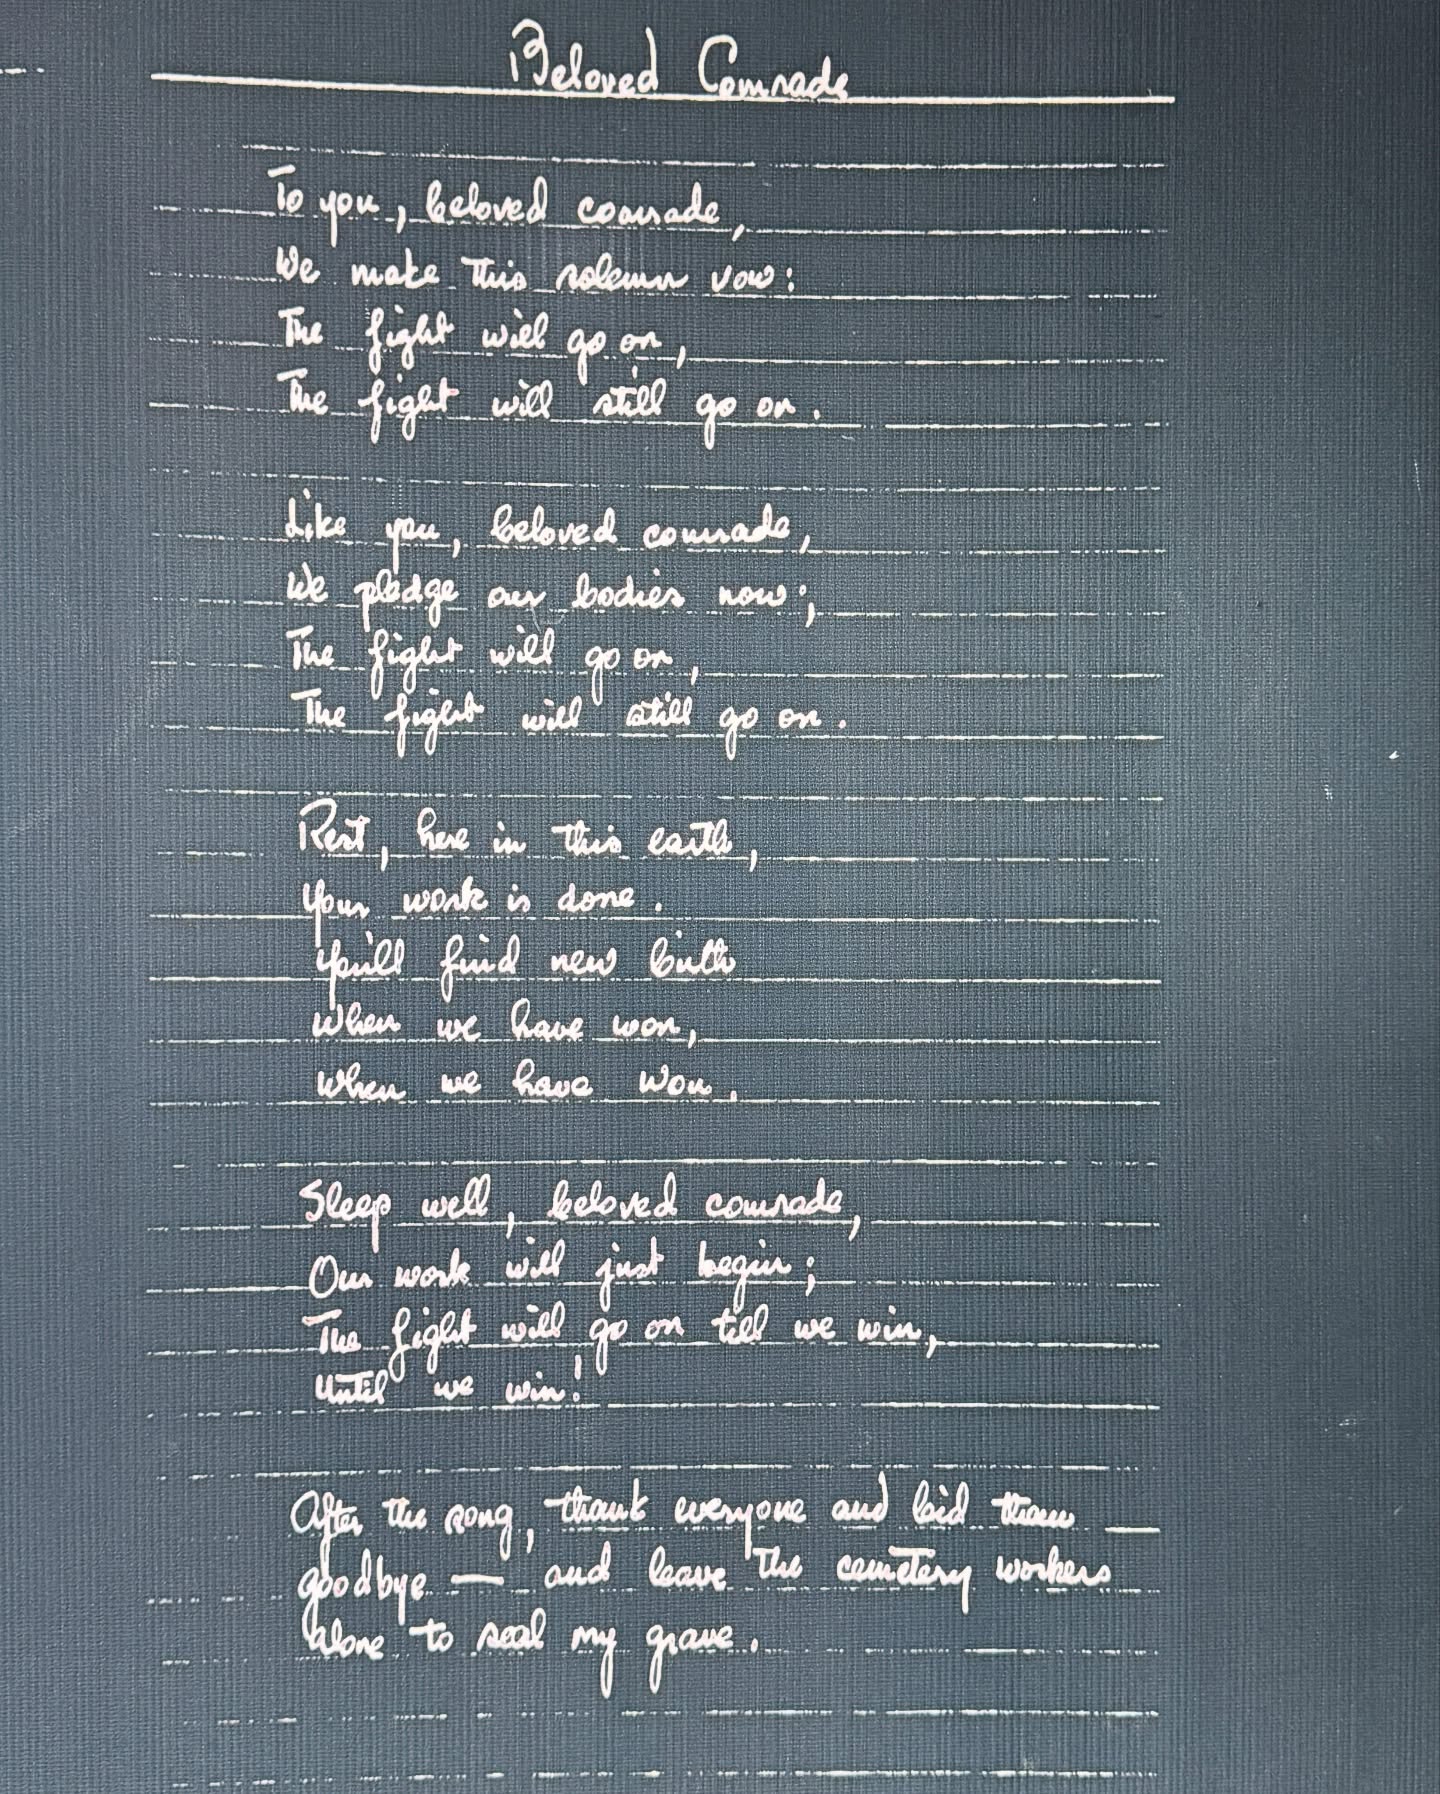 Beloved Comrade
To you, beloved comrade,
We make this solemn vow:
The fight will go on,
The fight will still go on.
Like you, beloved comrade,
We pledge our bodies now;
The fight will go on,
The fight will still go on.
Rest, here in this earth,
Your work is done.
You'll find new birth
When we have won,
When we have won.
Sleep well, beloved comrade,
Our work will just begin;
The fight will go on till we win,
Until we win!
After the song, thank everyone and bid them
goodbye — and leave the cemetery workers
alone to seal my grave.